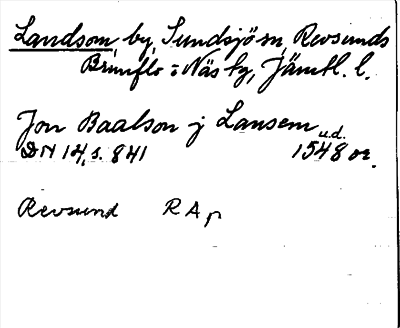 Landsom by, Sundsjö sn, Revsunds
Brunflo o Näs tg, Jämtl. l.
Jon Baalson j Lansem u.d.
DN 14, s. 841 1548 or.
Revsund RAp